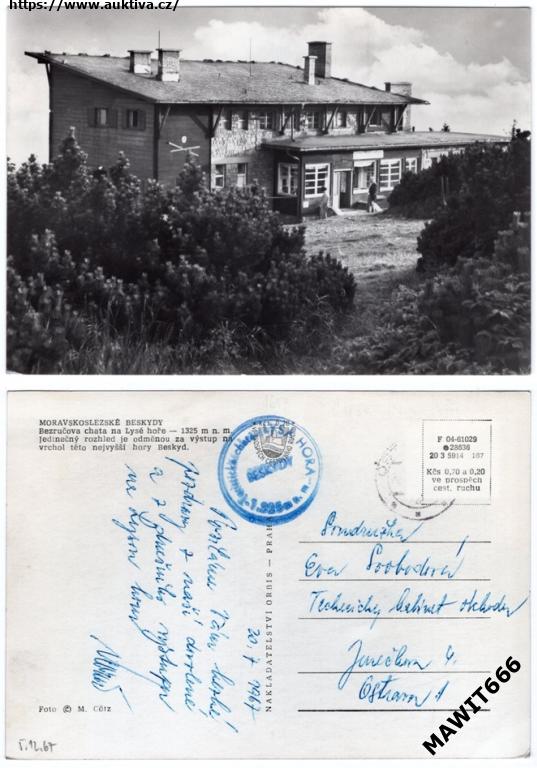 https://www.auktiva.cz/
MORAVSKOSLEZSKÉ BESKYDY
Bezručova chata na Lysé hoře — 1325 m n. m.
Jedinečný rozhled je odměnou za výstup na
vrchol této nejvyšší hory Beskyd.
LYSÁ HORA
BESKYDY
1.325 m n. m.
F 04-61029
28636
20 3 5914 167
Kčs 0,70 a 0,20
ve prospěch
cest. ruchu
Posíláme Vám hezké
pozdravy z naší dovolené
a z dnešního výstupu
na Lysou horu
20. 7. 1967
NAKLADATELSTVÍ ORBIS — PRAHA
Soudružka
Eva Svobodová
Technický kabinet obchodu
Ostrava 1
Foto © M. Cötz
5.12.67
MAWIT666